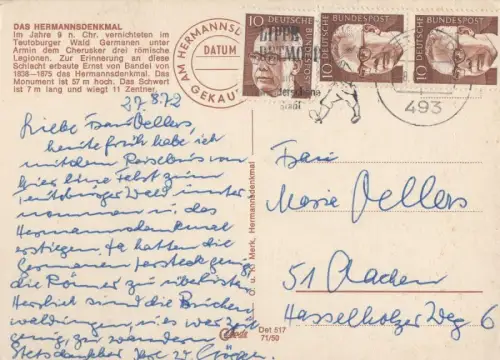 DAS HERMANNSDENKMAL
Im Jahre 9 n. Chr. vernichteten im
Teutoburger Wald Germanen unter
Armin dem Cherusker drei römische
Legionen. Zur Erinnerung an diese
Schlacht erbaute Ernst von Bandel von
1838-1875 das Hermannsdenkmal. Das
Monument ist 57 m hoch. Das Schwert
ist 7 m lang und wiegt 11 Zentner.
AM HERMANNSD
DATUM
GEKAU
10 DEUTSCHE BUNDESPOST
10 DEUTSCHE BUNDESPOST
10 DEUTSCHE BUNDESPOST
LIPPE
DETMOLD
Stadt
493
27.8.72
Liebe Frau Oellers,
heute früh habe ich
mit dem Reisebus von
hier eine Fahrt zum
Teutoburger Wald unter-
nommen u. das
Hermannsdenkmal
erstiegen. Da hatten die
Germanen
die Römer zu
Herrlich sind die Buchen-
waldungen, u. es war
genug, zu wandern.
Stets dankbar
Frau
Marie Oellers
51 Aachen
Hasselholzer Weg 6
O. u. K. Merk, Hermannsdenkmal
Det 517
71/50